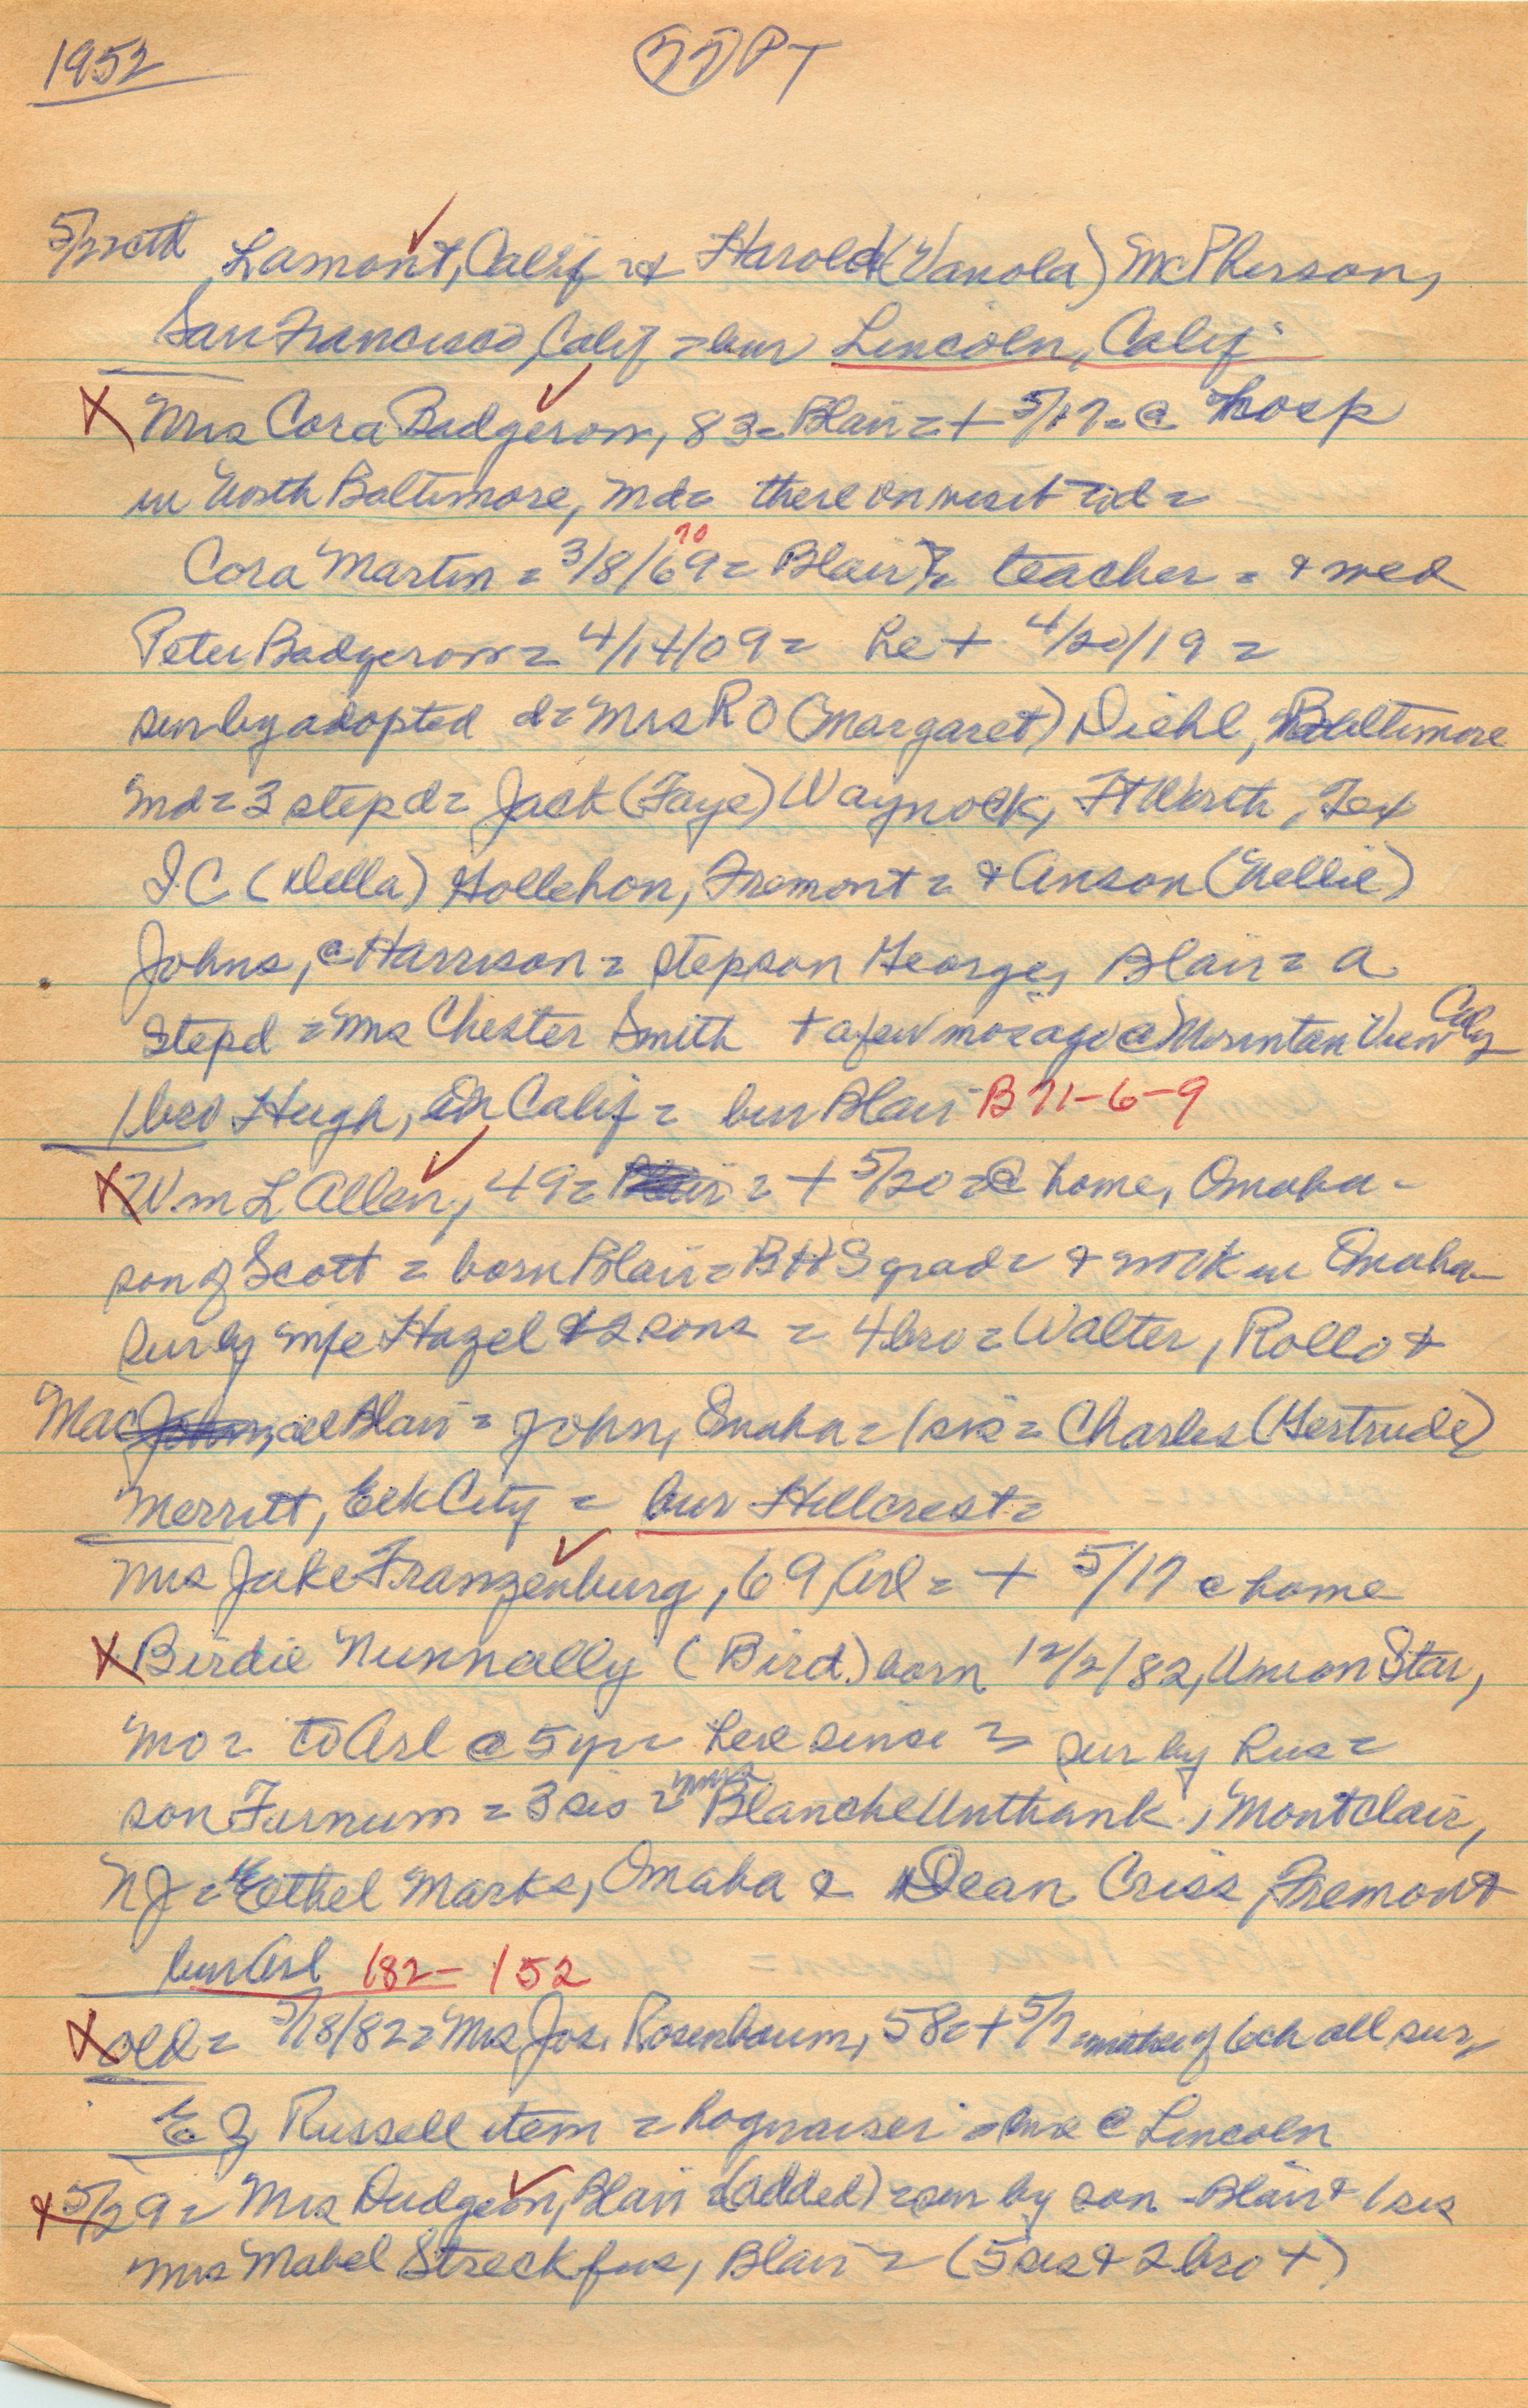 1952 PT
5/22 Lamont, Calif = & Harold (Vanola) McPherson,
San Francisco, Calif = bur Lincoln, Calif
X Mrs Cora Badgerow, 83 = Blair = + 5/17 = @ hosp
in North Baltimore, Md = there on visit =
Cora Martin = 3/8/69 = 70 Blair = teacher = & wed
Peter Badgerow = 4/14/09 = he + 4/20/19 =
sur by adopted d = Mrs R O (Margaret) Diehl, Baltimore
Md = 3 step d = Jack (Faye) Waynock, Ft Worth, Tex
I.C (Della) Hollehon, Fremont = & Anson (Nellie)
Johns, @ Harrison = stepson George, Blair = a
stepd = Mrs Chester Smith + a few mos ago @ Mountan View Calif
1 bro Hugh, in Calif = bur Blair - B 71-6-9
X Wm L Allen, 49 = = + 5/20 = @ home, Omaha -
son of Scott = born Blair = BHS grad = & work in Omaha -
sur by wife Hazel & 2 sons = 4 bro = Walter, Rollo &
Mac all Blair = John, Omaha = 1 sis = Charles (Gertrude)
Merritt, Elk City = bur Hillcrest =
Mrs Jake Franzenburg, 69, Arl = + 5/17 @ home
X Birdie Nunnally (Bird) born 12/2/82, Union Star,
Mo = to Arl @ 5 yr = here since = sur by hus =
son Furnum = 3 sis = Mrs Blanche Unthank, Montclair,
NJ = Ethel Marks, Omaha & Dean Criss, Fremont
bur Arl 182 - 152
X old = 5/18/82 = Mrs Jos. Rosenbaum, 58 = + 5/7 = mother of 6 ch all sur
E J Russell item = hog raiser = live @ Lincoln
X 5/29 = Mrs Dudgeon, Blair = (added) = sur by son - Blair & 1 sis
Mrs Mabel Streckfus, Blair = (5 sis & 2 bro +)